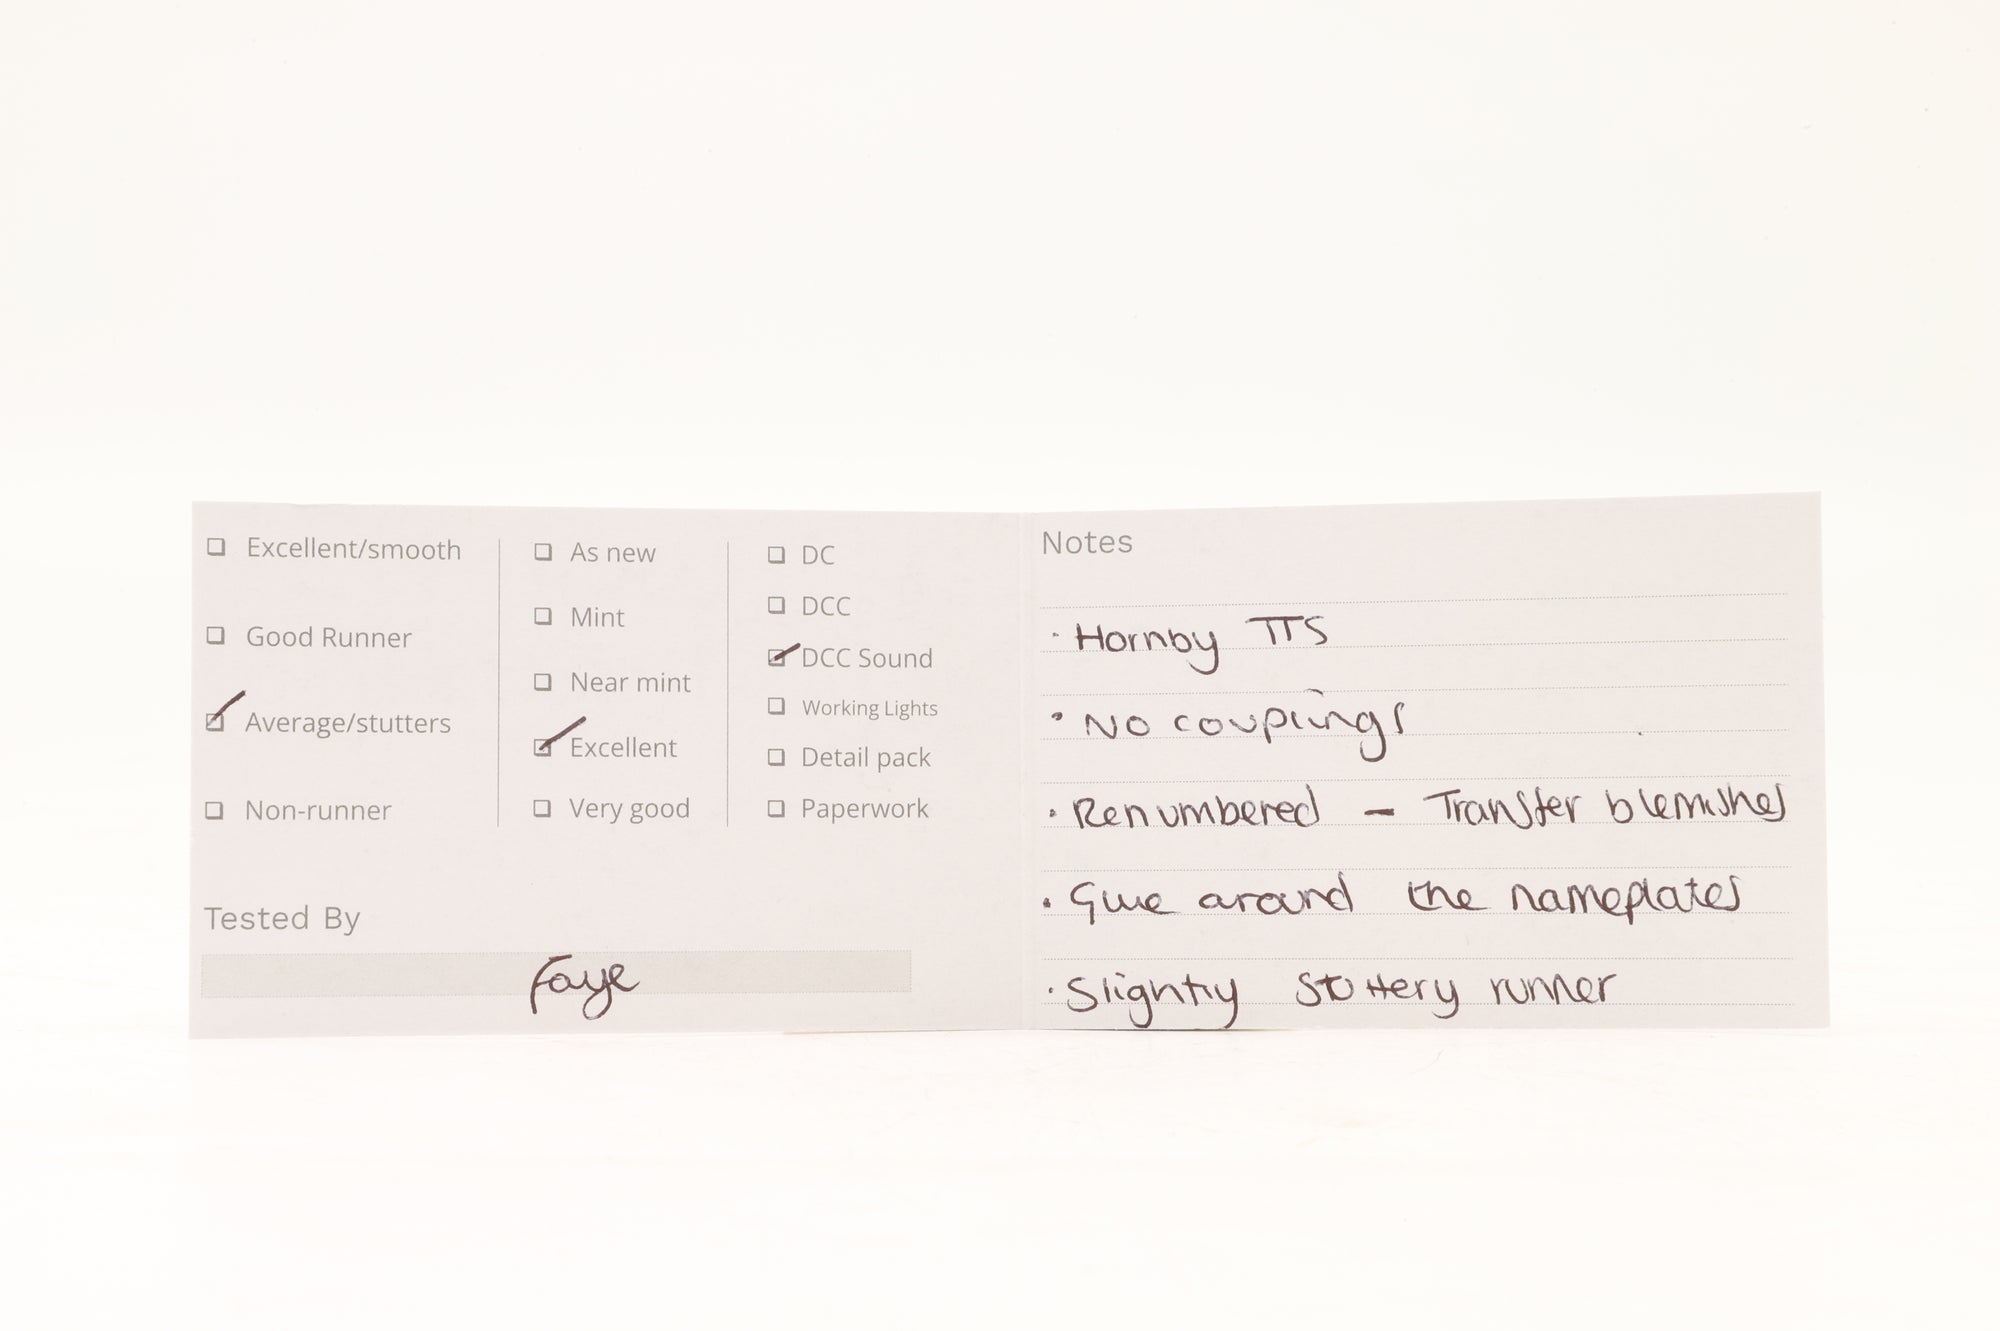 Excellent/smooth
Good Runner
Average/stutters
Non-runner
As new
Mint
Near mint
Excellent
Very good
DC
DCC
DCC Sound
Working Lights
Detail pack
Paperwork
Tested By
Faye
Notes
· Hornby TTS
· No couplings
· Renumbered - Transfer blemishes
· Glue around the nameplates
· Slightly Stuttery runner